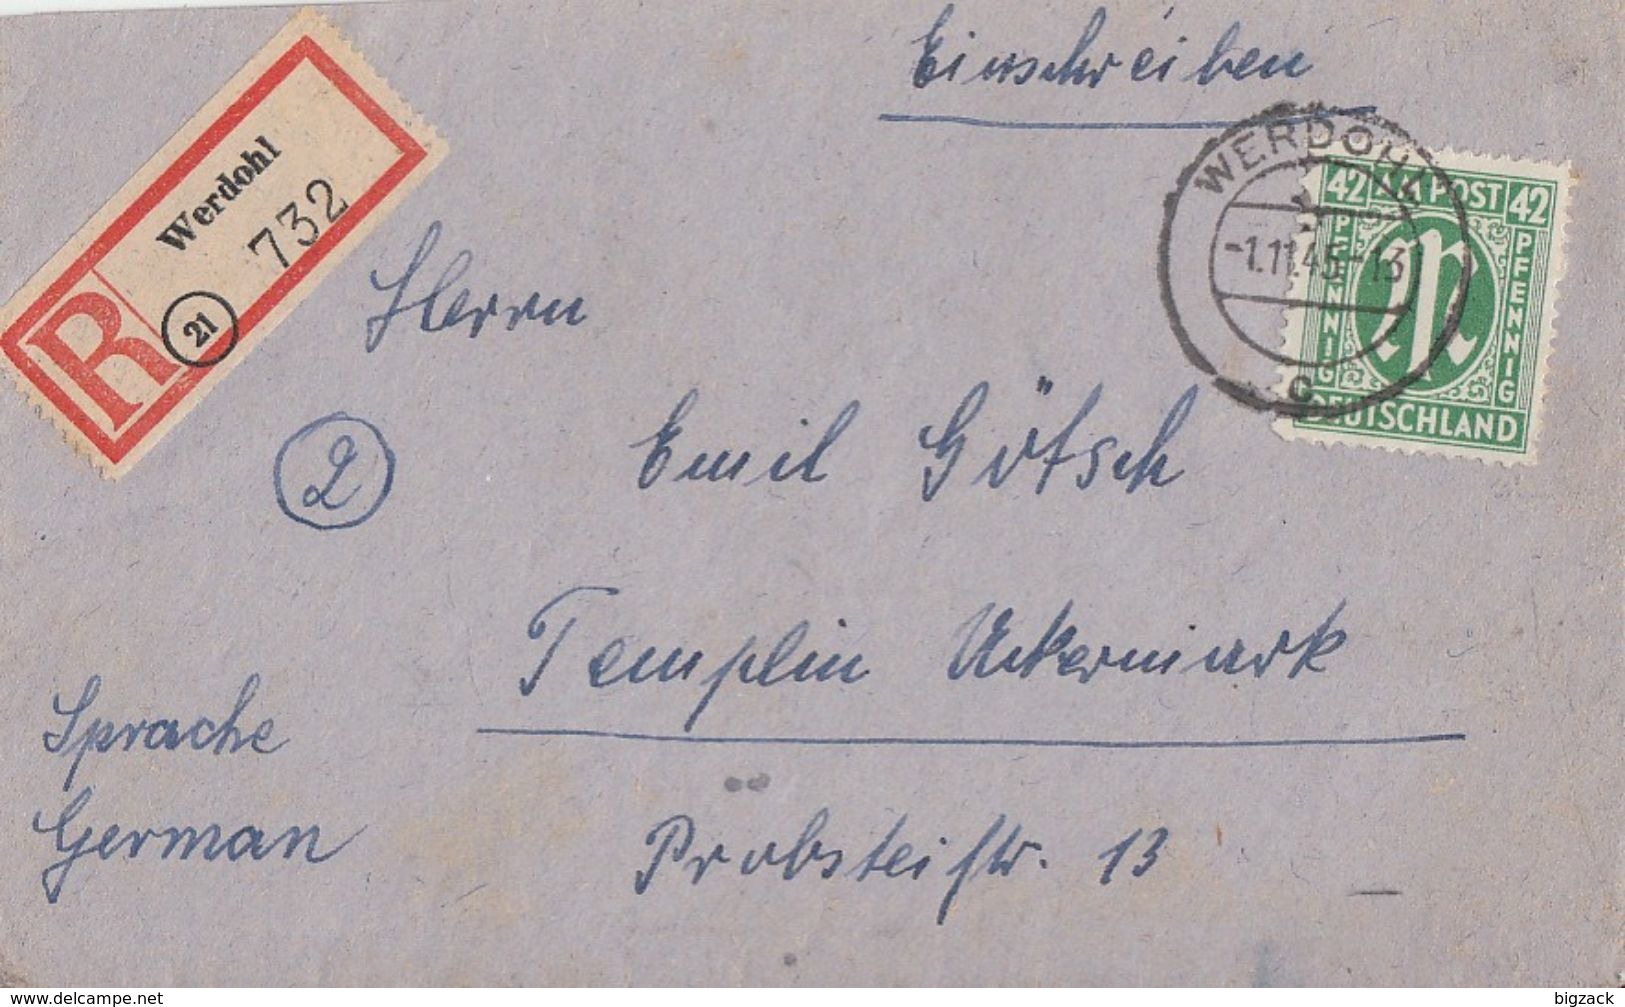 Einschreiben
Werdohl
732
R
21
WERDOHL
-1.11.45-13
c
42 AM POST 42
PFENNIG
PFENNIG
M
DEUTSCHLAND
Herrn
2
Emil Götsch
Templin Uckermark
Sprache
German
Pröbsteistr. 13
www.delcampe.net
bigzack